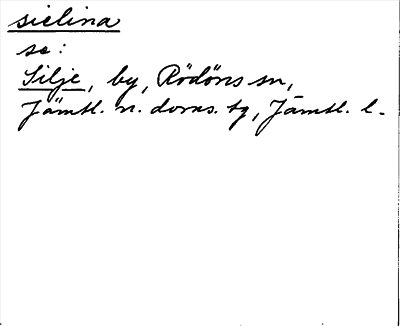 sielina
se:
Silje, by, Rödöns sn,
Jämtl. n. doms. tg, Jämtl. l.